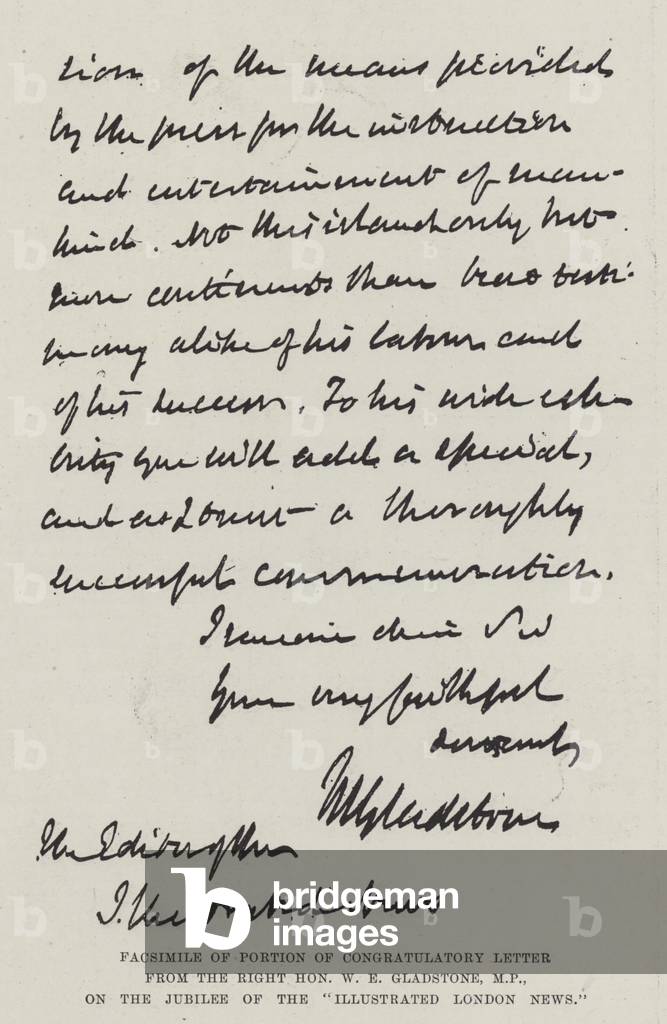 tion of the means provided
by the press for the instruction
and entertainment of man-
kind. Not this island only but
more continents than bear testi-
mony alike of his labours and
of his success. To his wide cele-
brity you will add a special,
and as I trust a thoroughly
successful commemoration.
I remain dear Sir
Your very faithful
servant
W E Gladstone
The Editor of the
I. London News
bridgeman
images
FACSIMILE OF PORTION OF CONGRATULATORY LETTER
FROM THE RIGHT HON. W. E. GLADSTONE, M.P.,
ON THE JUBILEE OF THE "ILLUSTRATED LONDON NEWS."